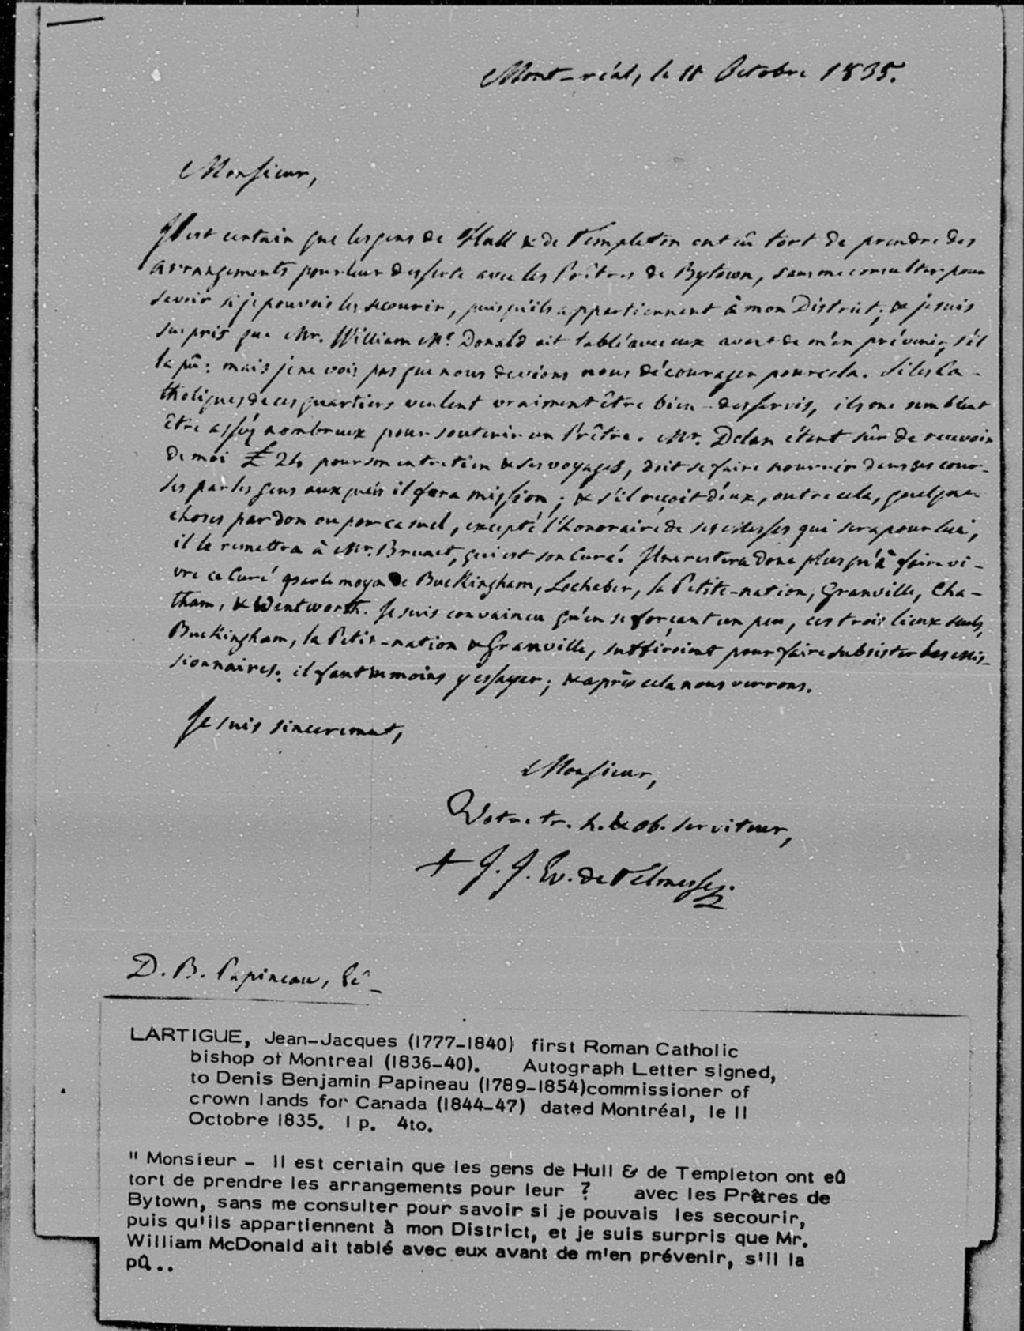 Mont-réal, le 11 Octobre 1835.
Monsieur,
Il est certain que les gens de Hull & de Templeton ont eû tort de prendre des
arrangements pour leur desserte avec les Prêtres de Bytown, sans me consulter pour
savoir si je pouvois les secourir, puisqu'ils appartiennent à mon District; & je suis
surpris que Mr. William Mc Donald ait tablé avec eux avant de m'en prévenir, s'il
la pû: mais je ne vois pas que nous devions nous décourager pour cela. Si les Ca-
tholiques de ces quartiers veulent vraiment être bien-desservis, ils me semblent
être assez nombreux pour soutenir un Prêtre. Mr. Dolan étant sûr de recevoir
de moi £ 24 pour son entretien & ses voyages, doit se faire nourrir dans ses cour-
ses par les gens auxquels il fera mission; & s'il reçoit d'eux, outre cela, quelques
choses par don ou par casuel, excepté l'honoraire de ses messes qui sera pour lui,
il le remettra à Mr. Brunet, qui est son Curé. Il ne restera donc plus qu'à faire vi-
vre ce Curé par le moyen de Buckingham, Locheber, la Petite-nation, Granville, Cha-
tham, & Wentworth. Je suis convaincu qu'en se forçant un peu, ces trois lieux seuls,
Buckingham, la Petite-nation & Granville, suffiroient pour faire subsister les mis-
sionnaires. il faut du moins y essayer; & après cela nous verrons.
Je suis sincèrement,
Monsieur,
Votre tr. h. & ob. serviteur,
+ J. J. Ev. de Telmesse.
D. B. Papineau, Ec-
LARTIGUE, Jean-Jacques (1777-1840) first Roman Catholic
bishop of Montreal (1836-40). Autograph Letter signed,
to Denis Benjamin Papineau (1789-1854)commissioner of
crown lands for Canada (1844-47) dated Montréal, le 11
Octobre 1835. 1 p. 4to.
" Monsieur - Il est certain que les gens de Hull & de Templeton ont eû
tort de prendre les arrangements pour leur ? avec les Prêtres de
Bytown, sans me consulter pour savoir si je pouvais les secourir,
puis qu'ils appartiennent à mon District, et je suis surpris que Mr.
William McDonald ait tablé avec eux avant de m'en prévenir, s'il la
pû..